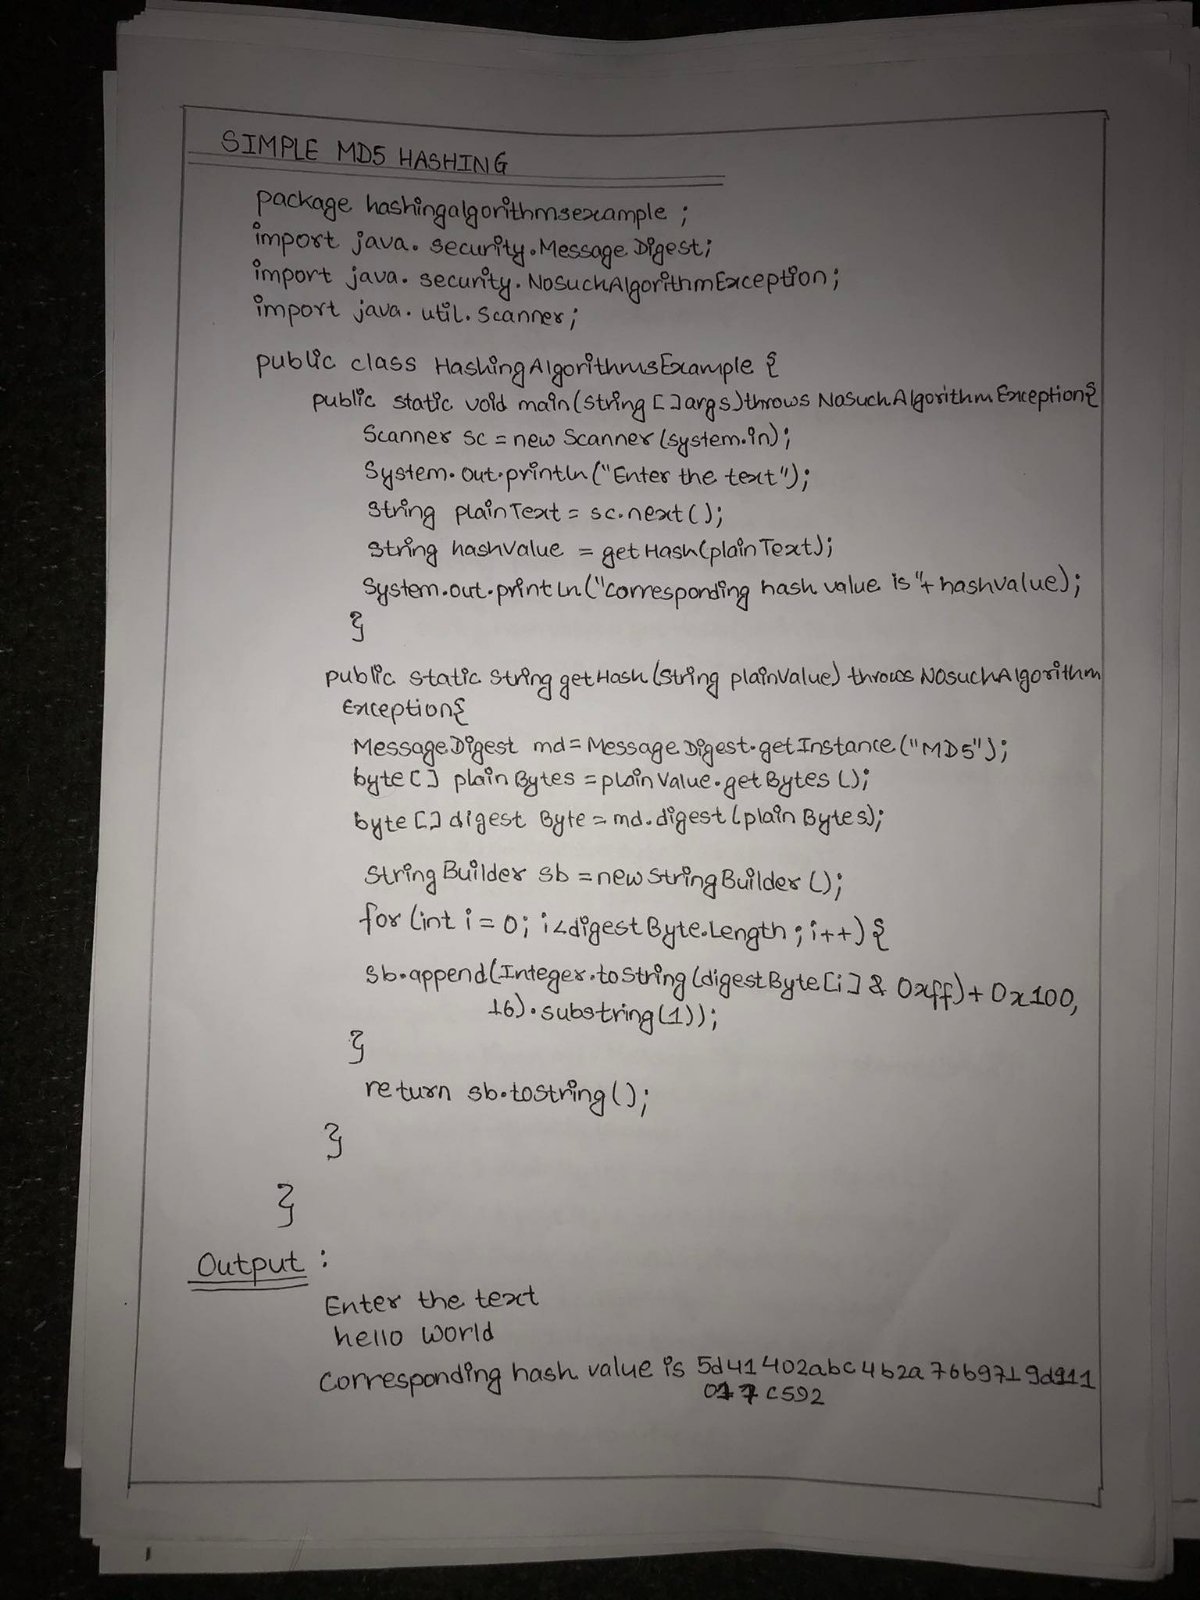 SIMPLE MD5 HASHING
package hashingalgorithmsexample ;
import java. security. Message Digest;
import java. security. NoSuchAlgorithmException;
import java. util. Scanner;
public class HashingAlgorithmsExample {
public static void main(String [] args) throws NoSuchAlgorithm Exception{
Scanner sc = new Scanner (system.in);
System. out.println ("Enter the text");
String plainText = sc.next();
String hashValue = getHash(plainText);
System.out.println("Corresponding hash value is "+ hashvalue);
}
public static String getHash (String plainValue) throws NoSuchAlgorithm
Exception{
MessageDigest md = Message Digest.getInstance ("MD5");
byte [] plainBytes = plainValue.getBytes ();
byte [] digest Byte = md.digest (plain Bytes);
StringBuilder sb = new StringBuilder ();
for (int i = 0; i<digestByte.Length; i++) {
sb.append(Integer.toString (digestByte[i] & 0xff) + 0x100,
16).substring(1));
}
return sb.toString();
}
}
Output :
Enter the text
hello world
Corresponding hash value is 5d41402abc4b2a76b9719d911
017c592